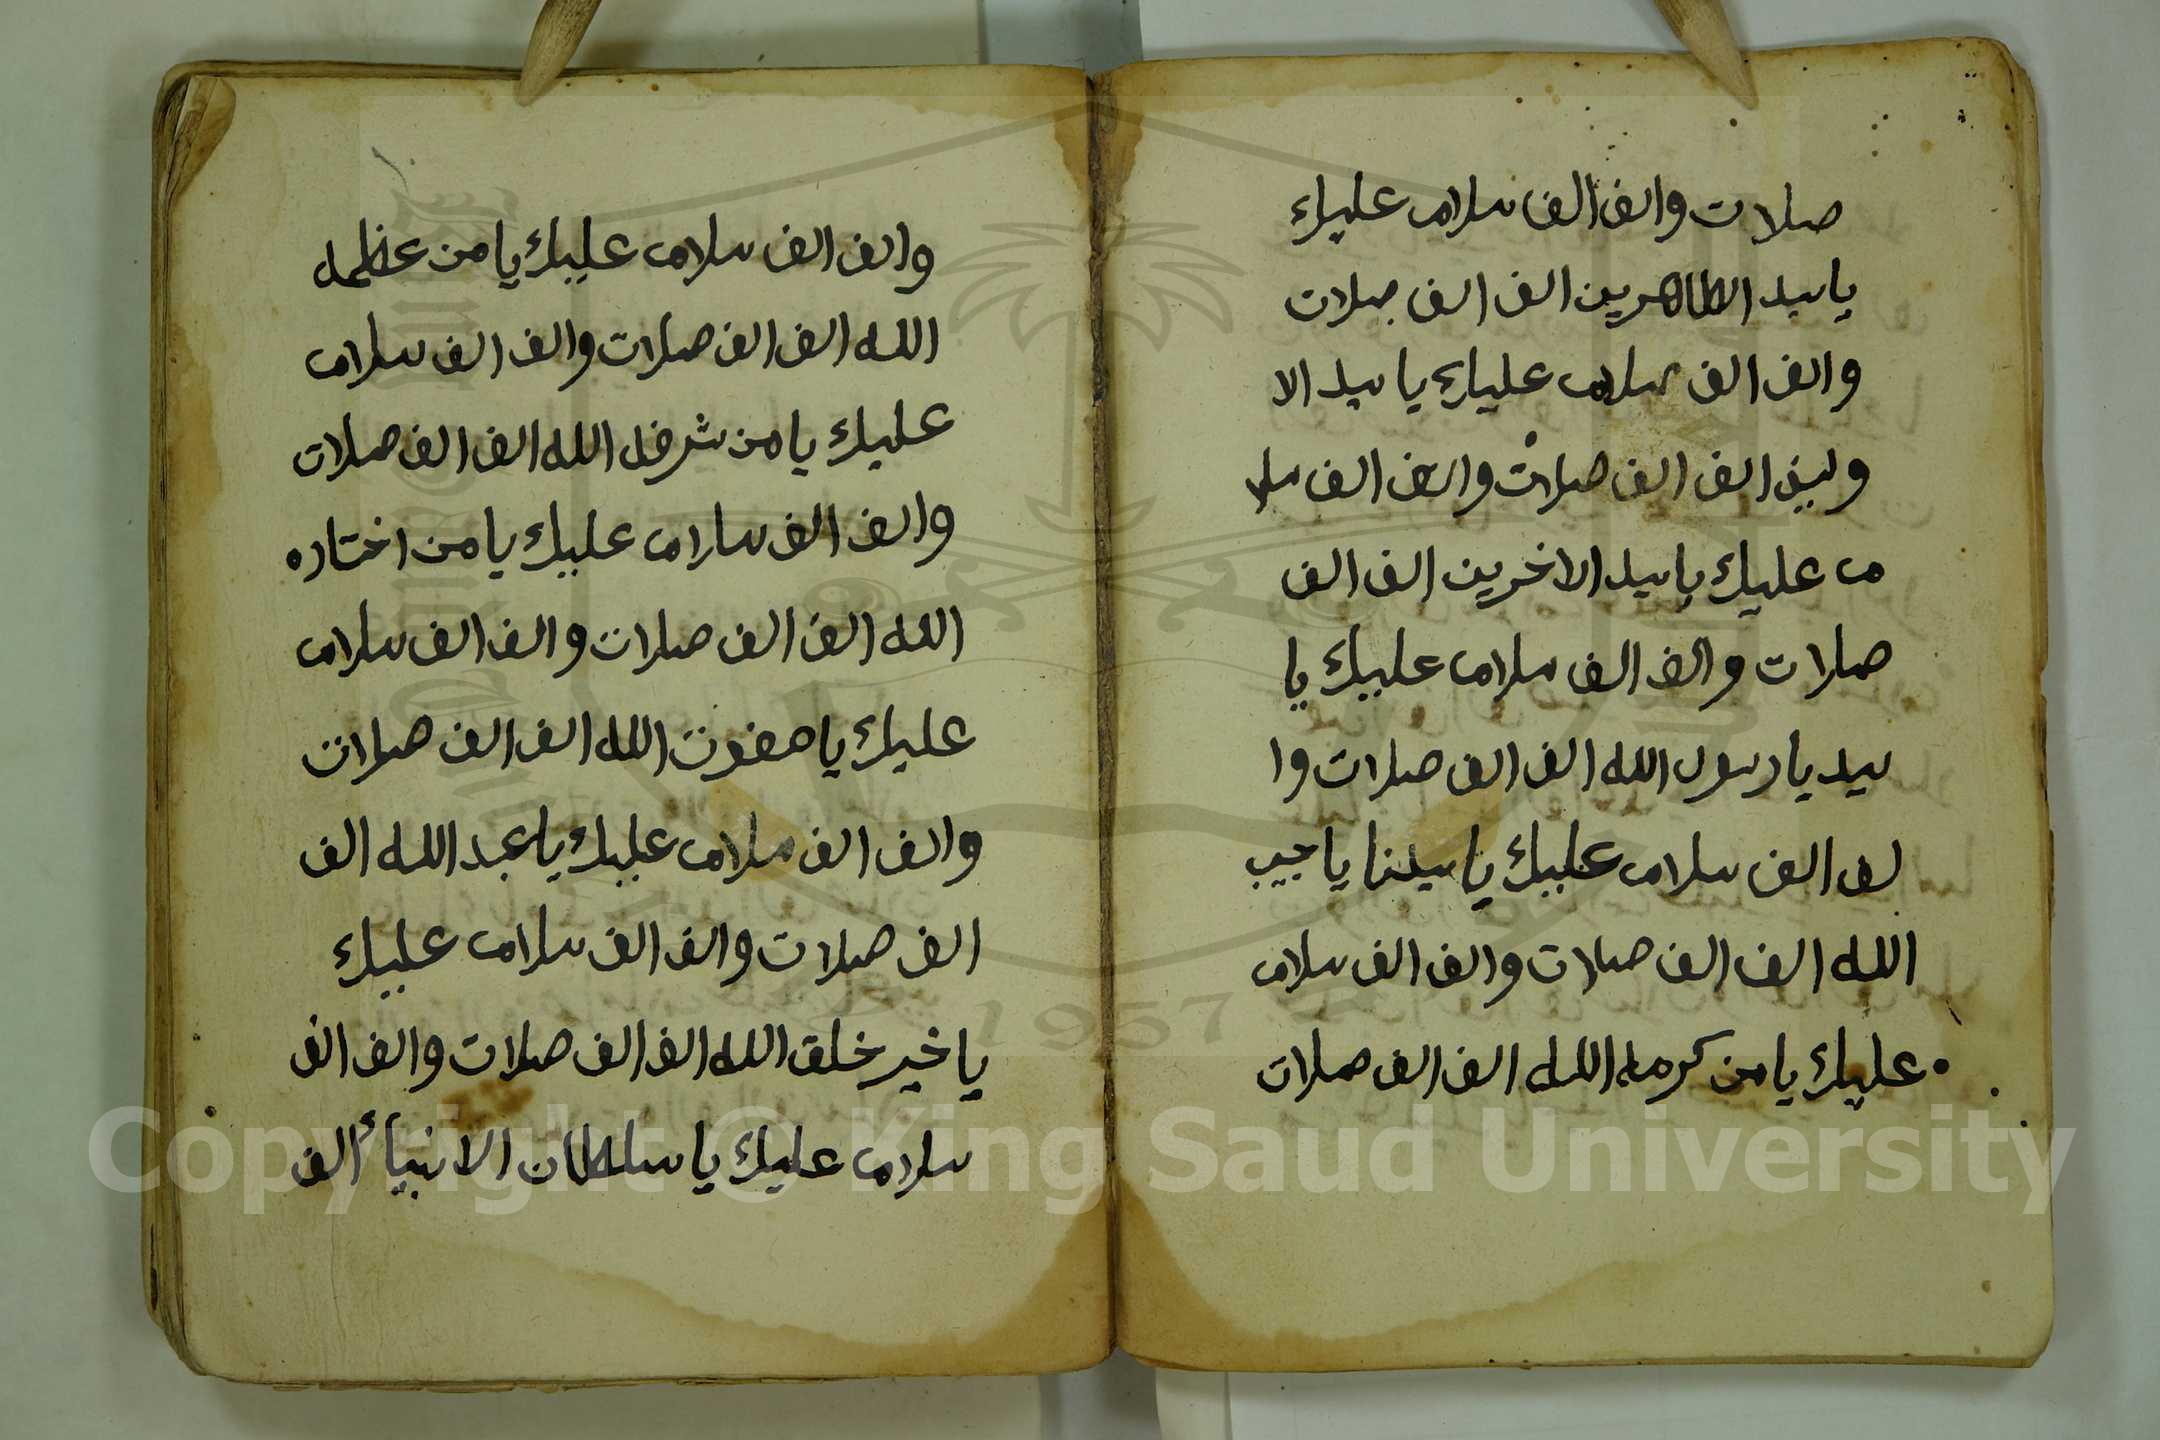 صلات والف الف سلام عليك
يا سيد الطاهرين الف الف صلات
والف الف سلام عليك يا سيد الا
ولين الف الف صلات والف الف سلا
م عليك يا سيد الاخرين الف الف
صلات والف الف سلام عليك يا
سيد يا رسول الله الف الف صلات وا
لف الف سلام عليك يا سيدنا يا حبيب
الله الف الف صلات والف الف سلام
عليك يا من كرمه الله الف الف صلات
والف الف سلام عليك يا من عظمه
الله الف الف صلات والف الف سلام
عليك يا من شرفه الله الف الف صلات
والف الف سلام عليك يا من اختاره
الله الف الف صلات والف الف سلام
عليك يا صفوت الله الف الف صلات
والف الف سلام عليك يا عبد الله الف
الف صلات والف الف سلام عليك
يا خير خلق الله الف الف صلات والف الف
سلام عليك يا سلطان الانبيأ الف
1957
Copyright © King Saud University